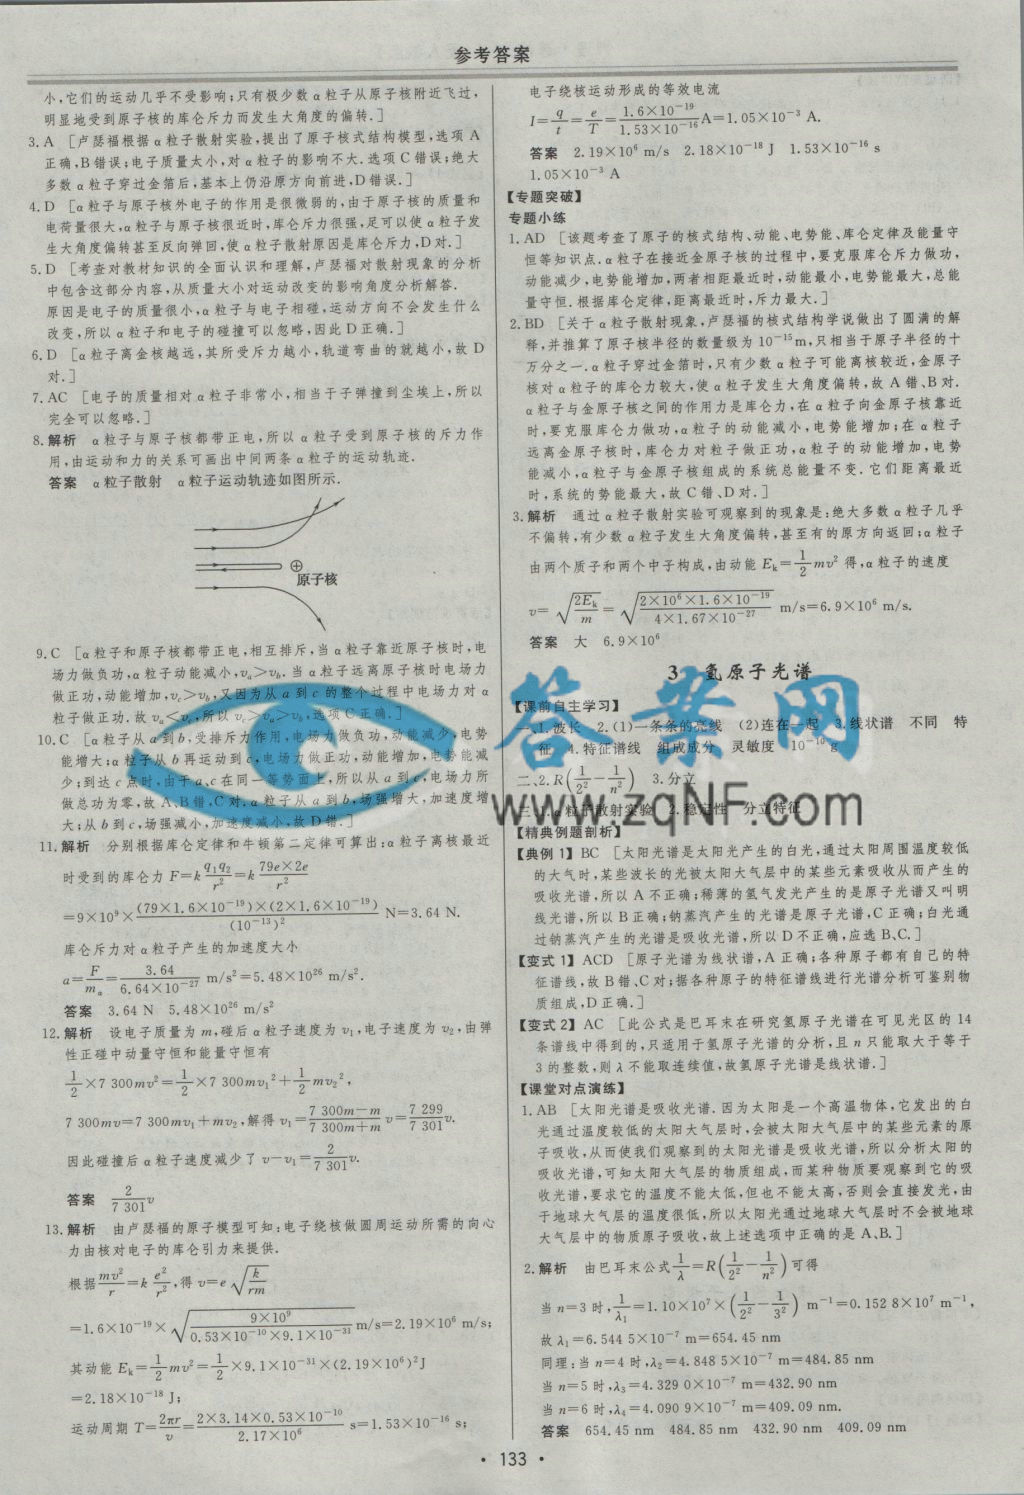 参考答案
小,它们的运动几乎不受影响;只有极少数α粒子从原子核附近飞过,
明显地受到原子核的库仑斥力而发生大角度的偏转.]
3.A [卢瑟福根据α粒子散射实验,提出了原子核式结构模型,选项A
正确,B错误;电子质量太小,对α粒子的影响不大.选项C错误;绝大
多数α粒子穿过金箔后,基本上仍沿原方向前进,D错误.]
4.D [α粒子与原子核外电子的作用是很微弱的,由于原子核的质量和
电荷量很大,α粒子与原子核很近时,库仑斥力很强,足可以使α粒子发
生大角度偏转甚至反向弹回,使α粒子散射原因是库仑斥力,D对.]
5.D [考查对教材知识的全面认识和理解,卢瑟福对散射现象的分析
中包含这部分内容,从质量大小对运动改变的影响角度分析解答.
原因是电子的质量很小,α粒子与电子相碰,运动方向不会发生什么
改变,所以α粒子和电子的碰撞可以忽略,因此D正确.]
6.D [α粒子离金核越远,其所受斥力越小,轨道弯曲的就越小,故D
对.]
7.AC [电子的质量相对α粒子非常小,相当于子弹撞到尘埃上,所以
完全可以忽略.]
8.解析 α粒子与原子核都带正电,所以α粒子受到原子核的斥力作
用,由运动和力的关系可画出中间两条α粒子的运动轨迹.
答案 α粒子散射 α粒子运动轨迹如图所示.
⊕
原子核
9.C [α粒子和原子核都带正电,相互排斥,当α粒子靠近原子核时,电
场力做负功,α粒子动能减小,vₐ>v_b.当α粒子远离原子核时电场力
做正功,动能增加,v_c>v_b,又因为从a到c的整个过程中电场力对α
粒子做正功.故vₐ<v_c,所以v_c>vₐ>v_b,选项C正确.]
10.C [α粒子从a到b,受排斥力作用,电场力做负功,动能减少,电势
能增大;α粒子从b再运动到c,电场力做正功,动能增加,电势能减
少;到达c点时,由于a、c在同一等势面上,所以从a到c,电场力所
做总功为零,故A、B错,C对.α粒子从a到b,场强增大,加速度增
大;从b到c,场强减小,加速度减小,故D错.]
11.解析 分别根据库仑定律和牛顿第二定律可算出:α粒子离核最近
时受到的库仑力F=k q₁q₂/r²=k 79e×2e/r²
=9×10⁹×(79×1.6×10⁻¹⁹)×(2×1.6×10⁻¹⁹)/(10⁻¹³)² N=3.64 N.
库仑斥力对α粒子产生的加速度大小
a=F/mₐ=3.64/6.64×10⁻²⁷ m/s²=5.48×10²⁶ m/s².
答案 3.64 N 5.48×10²⁶ m/s²
12.解析 设电子质量为m,碰后α粒子速度为v₁,电子速度为v₂,由弹
性正碰中动量守恒和能量守恒有
1/2×7 300mv²=1/2×7 300mv₁²+1/2mv₂²,
7 300mv=7 300mv₁+mv₂,解得v₁=7 300m−m/7 300m+m v=7 299/7 301v.
因此碰撞后α粒子速度减少了v−v₁=2/7 301v.
答案 2/7 301v
13.解析 由卢瑟福的原子模型可知:电子绕核做圆周运动所需的向心
力由核对电子的库仑引力来提供.
根据mv²/r=k e²/r²,得v=e√(k/rm)
=1.6×10⁻¹⁹×√(9×10⁹/0.53×10⁻¹⁰×9.1×10⁻³¹) m/s=2.19×10⁶ m/s;
其动能Eₖ=1/2mv²=1/2×9.1×10⁻³¹×(2.19×10⁶)²J
=2.18×10⁻¹⁸ J;
运动周期T=2πr/v=2×3.14×0.53×10⁻¹⁰/2.17×10⁶ s=1.53×10⁻¹⁶ s;
电子绕核运动形成的等效电流
I=q/t=e/T=1.6×10⁻¹⁹/1.53×10⁻¹⁶A=1.05×10⁻³ A.
答案 2.19×10⁶ m/s 2.18×10⁻¹⁸ J 1.53×10⁻¹⁶ s
1.05×10⁻³ A
【专题突破】
专题小练
1.AD [该题考查了原子的核式结构、动能、电势能、库仑定律及能量守
恒等知识点.α粒子在接近金原子核的过程中,要克服库仑斥力做功,
动能减少,电势能增加,两者相距最近时,动能最小,电势能最大,总能
量守恒.根据库仑定律,距离最近时,斥力最大.]
2.BD [关于α粒子散射现象,卢瑟福的核式结构学说做出了圆满的解
释,并推算了原子核半径的数量级为10⁻¹⁵m,只相当于原子半径的十
万分之一.α粒子穿过金箔时,只有少数α粒子可能离核较近,金原子
核对α粒子的库仑力较大,使α粒子发生大角度偏转,故A错、B对.
α粒子与金原子核之间的作用力是库仑力,在α粒子向金原子核靠近
时,要克服库仑力做功,α粒子的动能减小,电势能增加;在α粒子
远离金原子核时,库仑力对粒子做正功,α粒子的动能增加,电势
能减小,α粒子与金原子核组成的系统总能量不变.它们距离最近
时,系统的势能最大,故C错、D对.]
3.解析 通过α粒子散射实验可观察到的现象是:绝大多数α粒子几乎
不偏转,有少数α粒子发生大角度偏转,甚至有的原方向返回;α粒子
由两个质子和两个中子构成,由动能Eₖ=1/2mv²得,α粒子的速度
v=√(2Eₖ/m)=√(2×10⁶×1.6×10⁻¹⁹/4×1.67×10⁻²⁷) m/s=6.9×10⁶ m/s.
答案 大 6.9×10⁶
3 氢原子光谱
【课前自主学习】
一、1.波长 2.(1)一条条的亮线 (2)连在一起 3.线状谱 不同 特
征 4.特征谱线 组成成分 灵敏度 10⁻¹⁰ g
二、2.R(1/2²−1/n²) 3.分立
三、1.α粒子散射实验 2.稳定性 分立特征
【精典例题剖析】
【典例1】BC [太阳光谱是太阳光产生的白光,通过太阳周围温度较低
的大气时,某些波长的光被太阳大气层中的某些元素吸收从而产生的
吸收光谱,所以A不正确;稀薄的氢气发光产生的是原子光谱又叫明
线光谱,所以B正确;钠蒸汽产生的光谱是原子光谱,C正确;白光通
过钠蒸汽产生的光谱是吸收光谱,所以D不正确,应选B、C.]
【变式1】ACD [原子光谱为线状谱,A正确;各种原子都有自己的特
征谱线,故B错、C对;据各种原子的特征谱线进行光谱分析可鉴别物
质组成,D正确.]
【变式2】AC [此公式是巴耳末在研究氢原子光谱在可见光区的14
条谱线中得到的,只适用于氢原子光谱的分析,且n只能取大于等于
3的整数,则λ不能取连续值,故氢原子光谱是线状谱.]
【课堂对点演练】
1.AB [太阳光谱是吸收光谱.因为太阳是一个高温物体,它发出的白
光通过温度较低的太阳大气层时,会被太阳大气层中的某些元素的原
子吸收,从而使我们观察到的太阳光谱是吸收光谱,所以分析太阳的
吸收光谱,可知太阳大气层的物质组成,而某种物质要观察到它的吸
收光谱,要求它的温度不能太低,但也不能太高,否则会直接发光,由
于地球大气层的温度很低,所以太阳光通过地球大气层时不会被地球
大气层中的物质原子吸收,故上述选项中正确的是A、B.]
2.解析 由巴耳末公式1/λ=R(1/2²−1/n²)可得
当n=3时,1/λ₁=1.10×10⁷×(1/2²−1/3²) m⁻¹=0.152 8×10⁷ m⁻¹,
故λ₁=6.544 5×10⁻⁷ m=654.45 nm
同理:当n=4时,λ₂=4.848 5×10⁻⁷ m=484.85 nm
当n=5时,λ₃=4.329 0×10⁻⁷ m=432.90 nm
当n=6时,λ₄=4.090 9×10⁻⁷ m=409.09 nm.
答案 654.45 nm 484.85 nm 432.90 nm 409.09 nm
答案网
www.zqNF.com
• 133 •